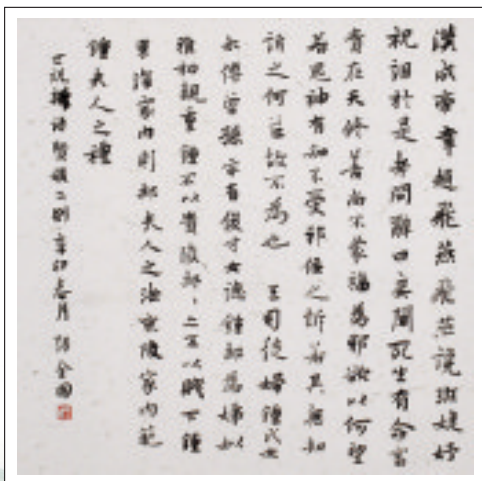 漢成帝幸趙飛燕飛燕讒班婕妤
祝詛於是考問辭曰妾聞死生有命富
貴在天修善尚不蒙福為邪欲以何望
若鬼神有知不受邪佞之訴若其無知
訴之何益故不為也 王司徒婦鍾氏女
太傅曾孫亦有俊才女德鍾郝為娣姒
雅相親重鍾不以貴陵郝〻亦不以賤下鍾
東海家內則郝夫人之法京陵家內範
鍾夫人之禮
世說新語賢媛二則辛卯春月 金國